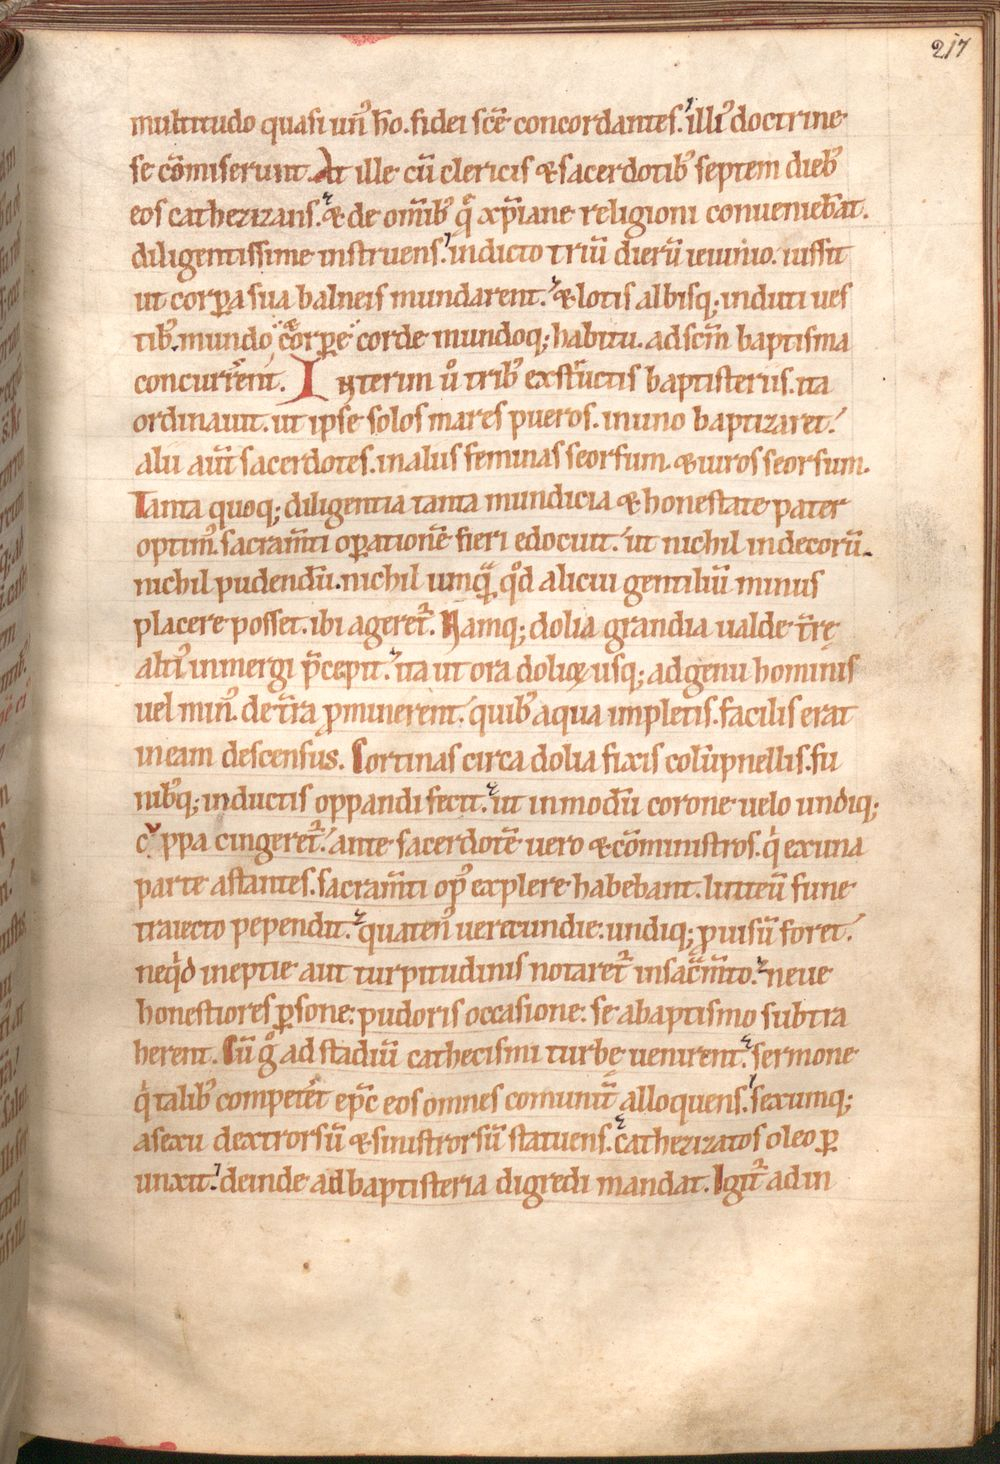 217
multitudo quasi un᷒ ho̅. fidei sc̅e concordantes. illi᷒ doctrine
se co̅miserunt. At ille cu̅ clericis & sacerdotib᷒ septem dieb᷒
eos cathezizans. & de om̅ib᷒ q̅ xp̅iane religioni convenieba̅t.
diligentissime instruens. indicto triu̅ dieru̅ ieiunio. iussit
ut corꝑa sua balneis mundarent. & lotis albisq; induti ues
tib᷒. mundo corꝑe corde mundoq; habitu. ad sc̅m baptisma
concurrent. Interim u͛o trib᷒ exstructis baptisteriis. ita
ordinauit. ut ipse solos mares pueros. in uno baptizaret.
alii aut̅ sacerdotes. in aliis feminas seorsum. & uiros seorsum.
Tanta quoq; diligentia tanta mundicia & honestate pater
optim᷒. sacram̅ti oꝑatione̅ fieri edocuit. ut nichil indecoru̅.
nichil pudendu̅. nichil umqua̅ qd̅ alicui gentiliu̅ minus
placere posset. ibi ageret᷑. Namq; dolia grandia ualde t̅rę
alti᷒ inmergi p̅cepit. ita ut ora dolioꝝ usq; ad genu hominis
uel min᷒. de t̅ra ꝓminerent. quib᷒ aqua impletis. facilis erat
in eam descensus. Cortinas circa dolia fixis colu̅pnellis. fu
nib᷒q; inductis oppandi fecit. ut in modu̅ corone uelo undiq;
cuppa cingeret᷑. ante sacerdote̅ uero & co̅ministros. qͥ ex una
parte astantes. sacram̅ti op᷒ explere habebant. linteu̅ fune
traiecto pependit. quaten᷒ uerecundie: undiq; ꝓuisu̅ foret.
neqͥd ineptie aut turpitudinis notaret᷑ in sacm̅to. neue
honestiores ꝑsone: pudoris occasione: se a baptismo subtra
herent. Cu̅ gͦ ad stadiu̅ cathecismi turbe uenirent. sermone
qͥ talib᷒ competeret ep̅c eos omnes comunit̅ alloquens. sexumq;
a sexu dextrorsu̅ & sinistrorsu̅ statuens. cathezizatos oleo ꝑ
unxit. deinde ad baptisteria digredi mandat. Igit᷑ ad in